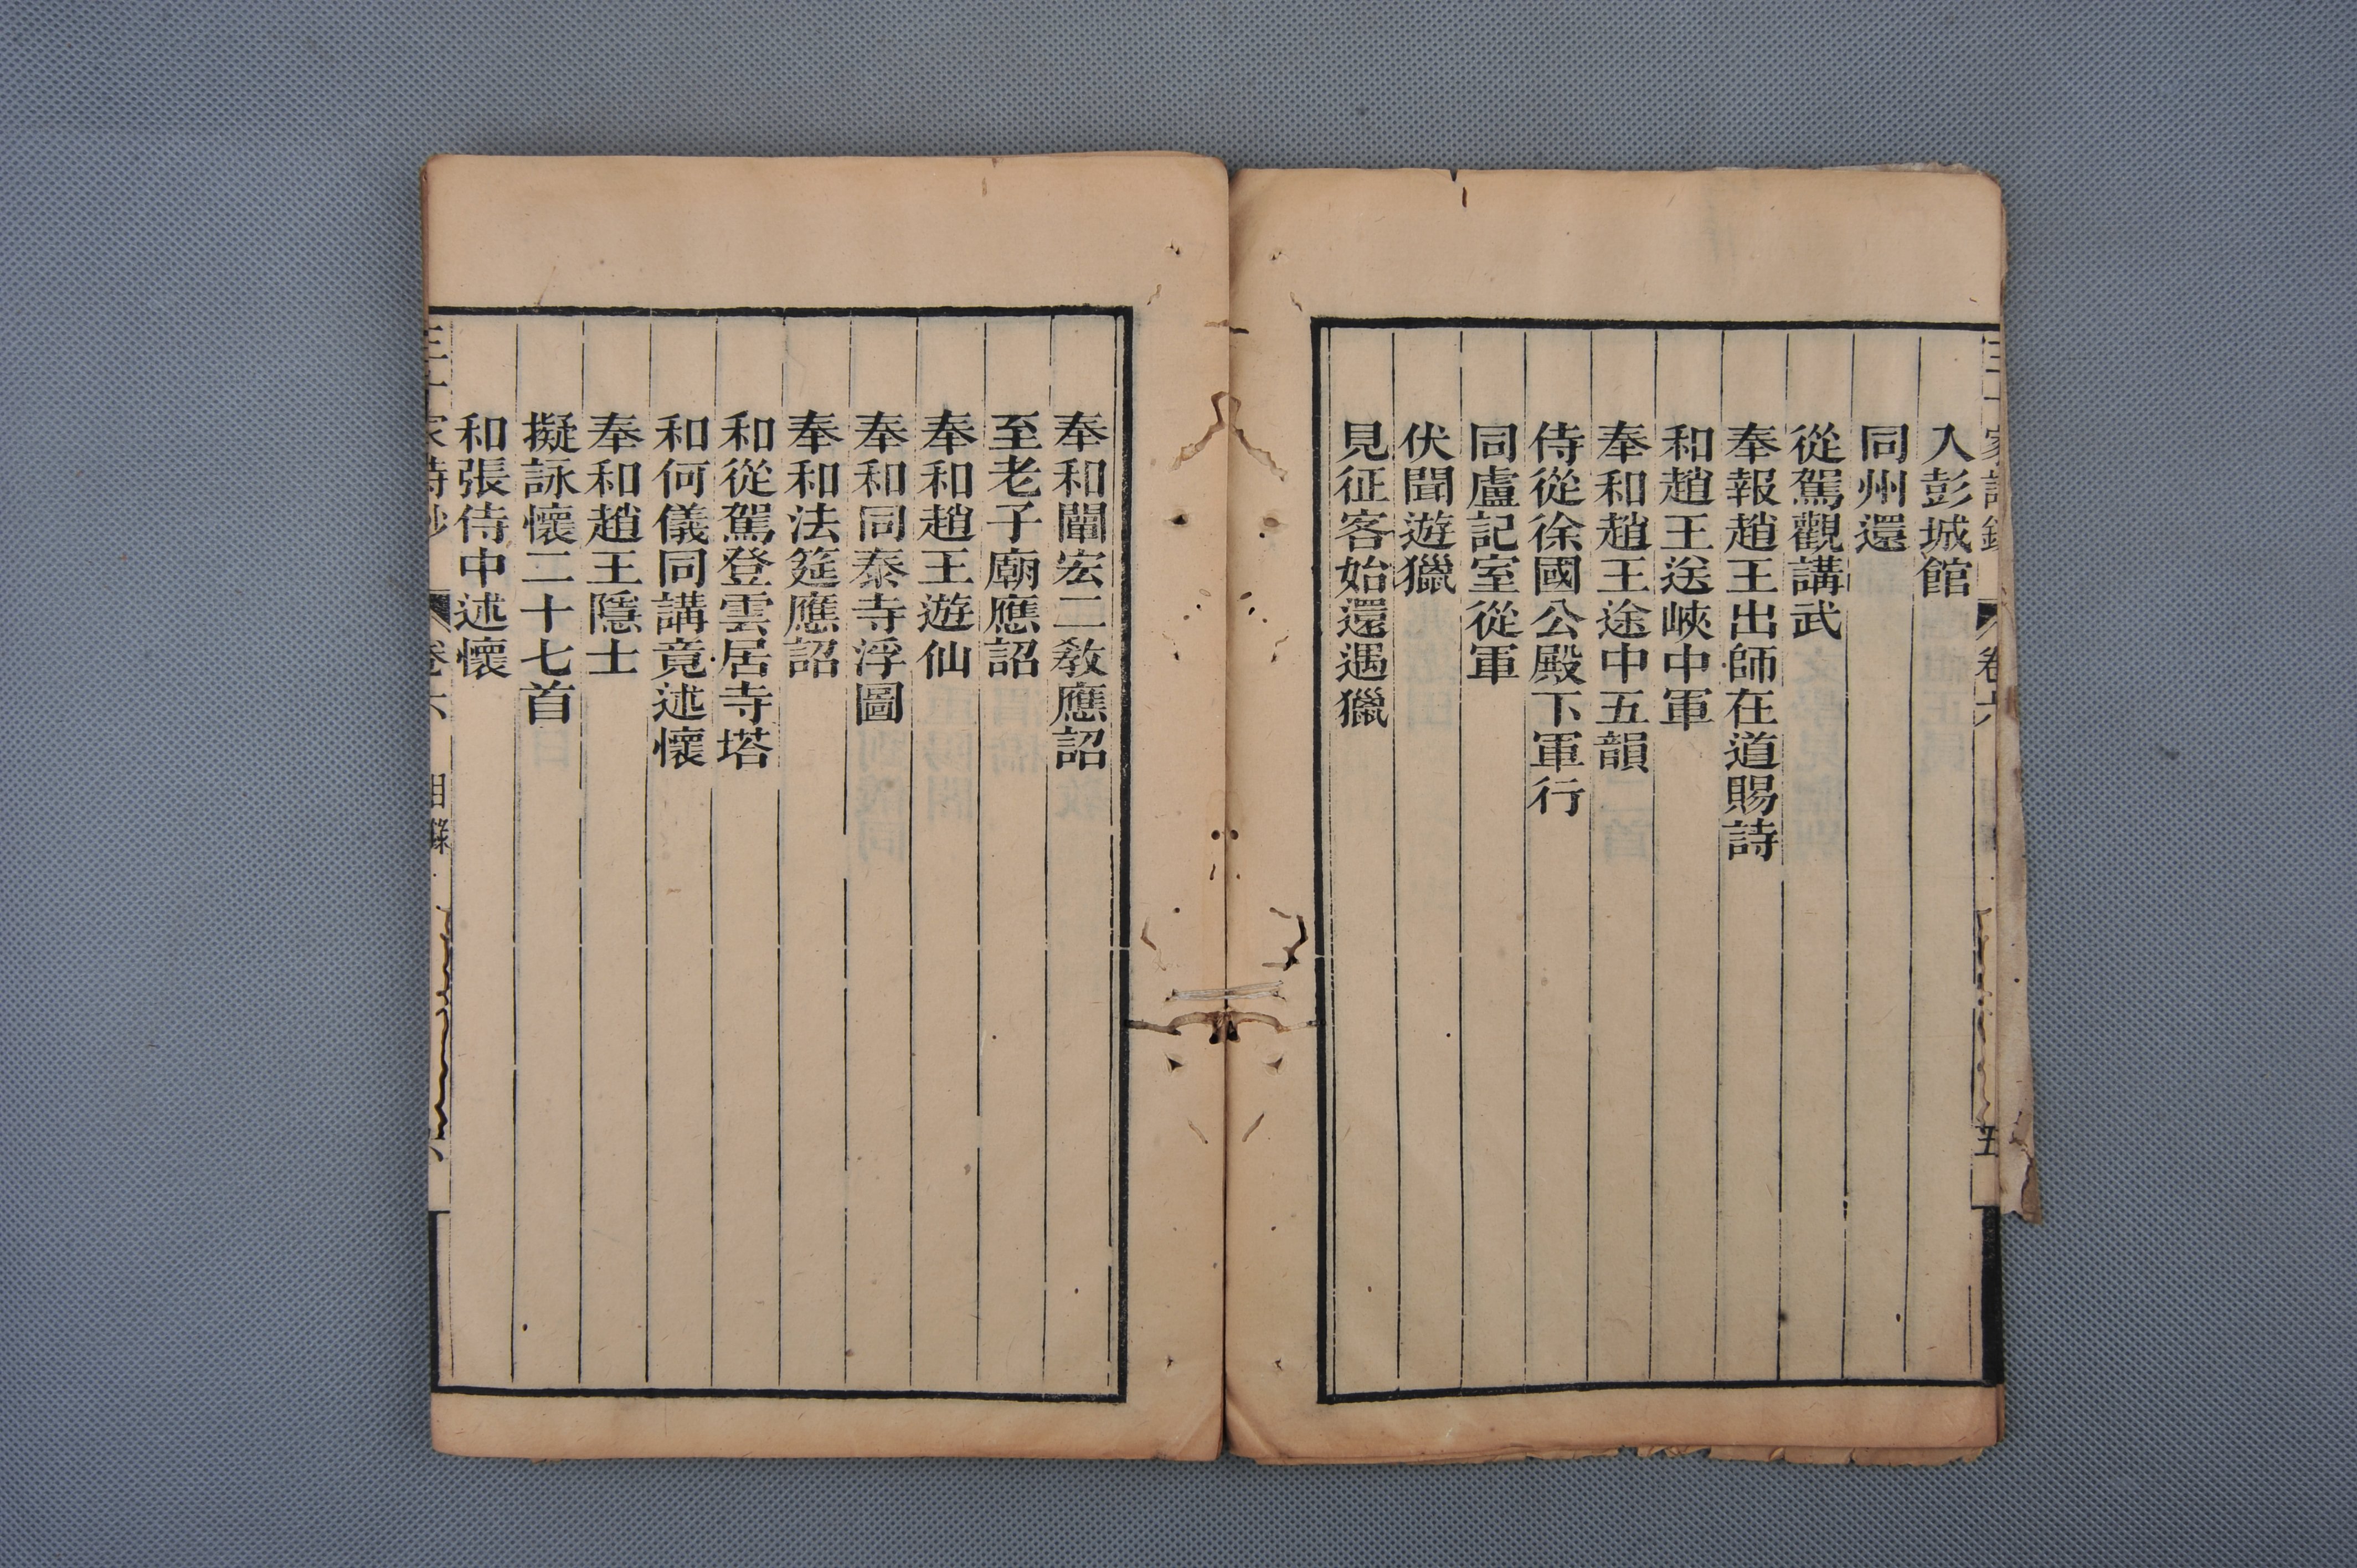 入彭城館
同州還
從駕觀講武
奉報趙王出師在道賜詩
和趙王送峽中軍
奉和趙王途中五韻
侍從徐國公殿下軍行
同盧記室從軍
伏聞遊獵
見征客始還遇獵
卷六
五
奉和闡宏二教應詔
至老子廟應詔
奉和趙王遊仙
奉和同泰寺浮圖
奉和法筵應詔
和從駕登雲居寺塔
和何儀同講竟述懷
奉和趙王隱士
擬詠懷二十七首
和張侍中述懷
卷六
目錄